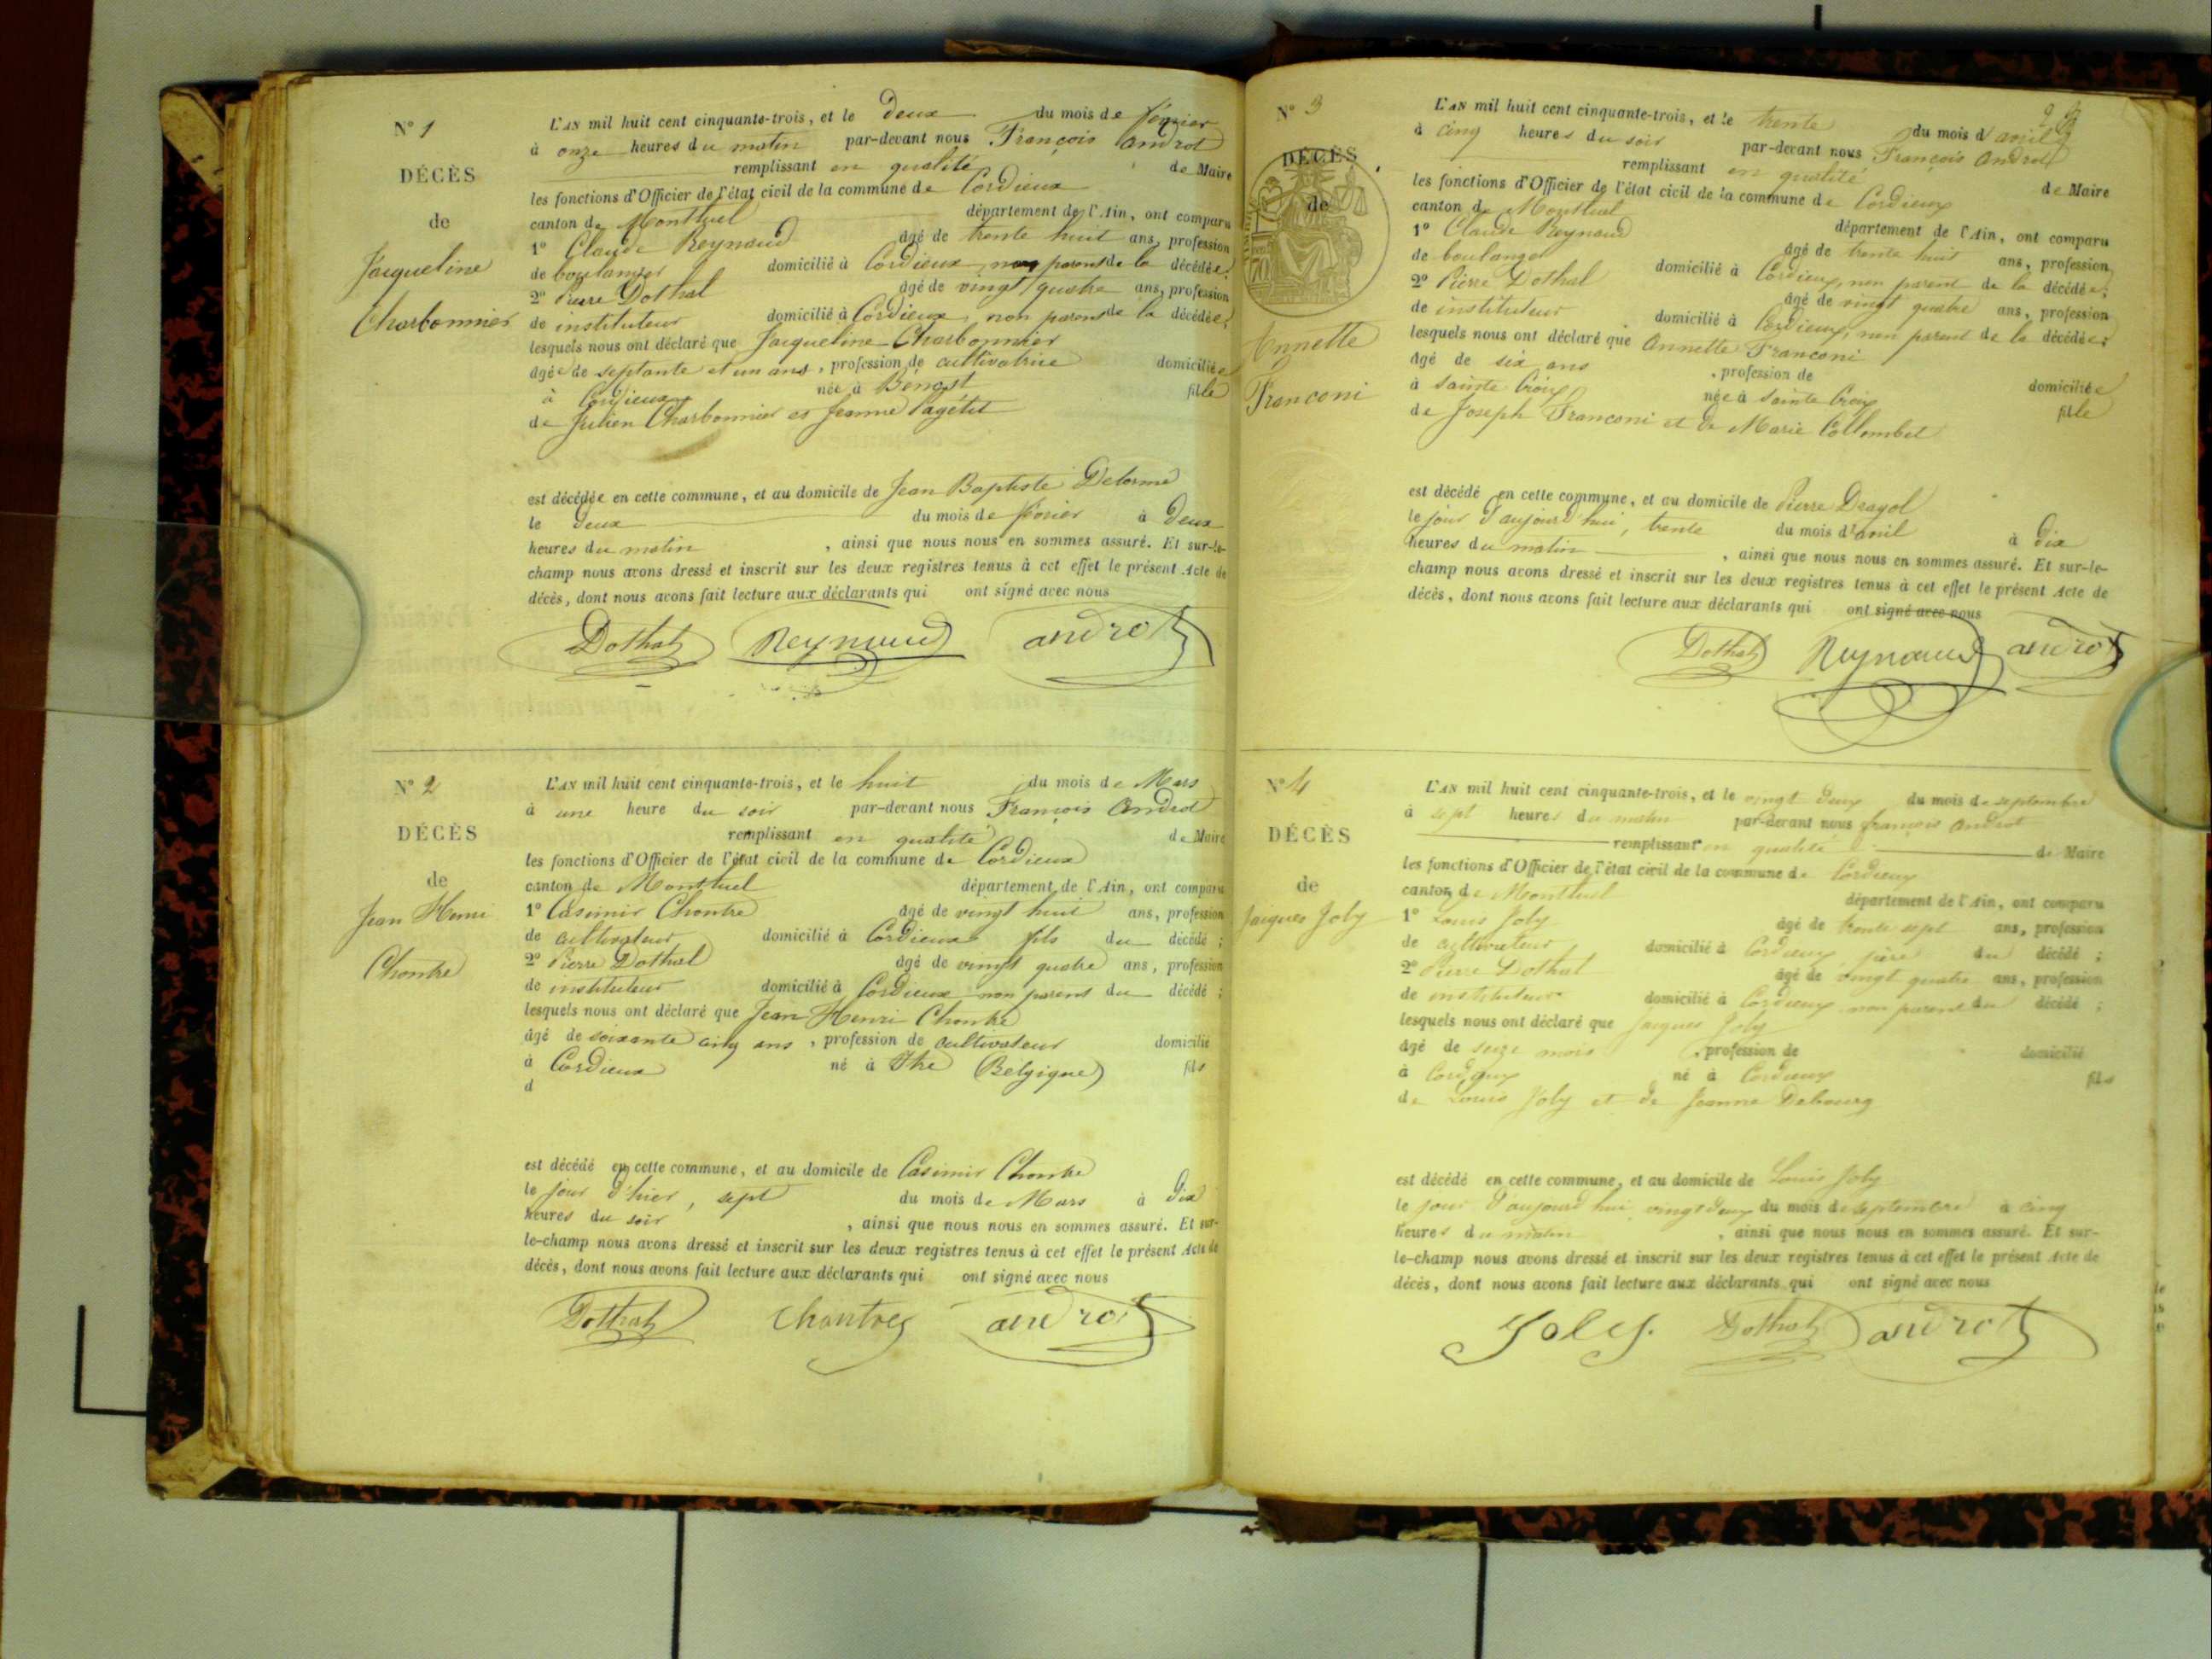 N° 1
DÉCÈS
de
Jacqueline
Charbonnier
L'AN mil huit cent cinquante-trois, et le deux du mois de février
à onze heures du matin par-devant nous François Androt
remplissant en qualité de Maire
les fonctions d'Officier de l'état civil de la commune de Cordieux
canton de Montluel département de l'Ain, ont comparu
1° Claude Reynaud âgé de trente huit ans, profession
de boulanger domicilié à Cordieux, non parent de la décédée;
2° Pierre Dothal âgé de vingt quatre ans, profession
de instituteur domicilié à Cordieux, non parent de la décédée;
lesquels nous ont déclaré que Jacqueline Charbonnier
âgée de septante et un ans, profession de cultivatrice domiciliée
à Cordieux née à Bénost fille
de Julien Charbonnier et Jeanne Pagétit
est décédée en cette commune, et au domicile de Jean Baptiste Delorme
le deux du mois de février à deux
heures du matin, ainsi que nous nous en sommes assuré. Et sur-le-
champ nous avons dressé et inscrit sur les deux registres tenus à cet effet le présent Acte de
décès, dont nous avons fait lecture aux déclarants qui ont signé avec nous
Dothal Reynaud androt
N° 2
DÉCÈS
de
Jean Henri
Chontre
L'AN mil huit cent cinquante-trois, et le huit du mois de Mars
à une heure du soir par-devant nous François Androt
remplissant en qualité de Maire
les fonctions d'Officier de l'état civil de la commune de Cordieux
canton de Montluel département de l'Ain, ont comparu
1° Casimir Chontre âgé de vingt huit ans, profession
de cultivateur domicilié à Cordieux fils du décédé;
2° Pierre Dothal âgé de vingt quatre ans, profession
de instituteur domicilié à Cordieux non parent du décédé;
lesquels nous ont déclaré que Jean Henri Chontre
âgé de soixante cinq ans, profession de cultivateur domicilié
à Cordieux né à (Belgique) fils
d
est décédé en cette commune, et au domicile de Casimir Chontre
le jour d'hier, sept du mois de Mars à dix
heures du soir, ainsi que nous nous en sommes assuré. Et sur-
le-champ nous avons dressé et inscrit sur les deux registres tenus à cet effet le présent Acte de
décès, dont nous avons fait lecture aux déclarants qui ont signé avec nous
Dothal Chontre androt
N° 3
DÉCÈS
de
Annette
Franconi
L'AN mil huit cent cinquante-trois, et le trente du mois d'avril
à cinq heures du soir par-devant nous François Androt
remplissant en qualité de Maire
les fonctions d'Officier de l'état civil de la commune de Cordieux
canton de Montluel département de l'Ain, ont comparu
1° Claude Reynaud âgé de trente huit ans, profession
de boulanger domicilié à Cordieux, non parent de la décédée;
2° Pierre Dothal âgé de vingt quatre ans, profession
de instituteur domicilié à Cordieux, non parent de la décédée;
lesquels nous ont déclaré que Annette Franconi
âgé de six ans, profession de domiciliée
à Sainte Croix née à Sainte Croix fille
de Joseph Franconi et de Marie Collombet
est décédé en cette commune, et au domicile de Pierre Dragol
le jour d'aujourd'hui, trente du mois d'avril à dix
heures du matin, ainsi que nous nous en sommes assuré. Et sur-le-
champ nous avons dressé et inscrit sur les deux registres tenus à cet effet le présent Acte de
décès, dont nous avons fait lecture aux déclarants qui ont signé avec nous
Dothal Reynaud androt
N° 4
DÉCÈS
de
Jacques Joly
L'AN mil huit cent cinquante-trois, et le vingt deux du mois de septembre
à sept heures du matin par-devant nous françois Androt
remplissant en qualité de Maire
les fonctions d'Officier de l'état civil de la commune de Cordieux
canton de Montluel département de l'Ain, ont comparu
1° Louis Joly âgé de trente sept ans, profession
de cultivateur domicilié à Cordieux père du décédé;
2° Pierre Dothal âgé de vingt quatre ans, profession
de instituteur domicilié à Cordieux non parent du décédé;
lesquels nous ont déclaré que Jacques Joly
âgé de seize mois, profession de domicilié
à Cordieux né à Cordieux fils
de Louis Joly et de Jeanne Debourg
est décédé en cette commune, et au domicile de Louis Joly
le jour d'aujourd'hui vingt deux du mois de septembre à cinq
heures du matin, ainsi que nous nous en sommes assuré. Et sur-
le-champ nous avons dressé et inscrit sur les deux registres tenus à cet effet le présent Acte de
décès, dont nous avons fait lecture aux déclarants qui ont signé avec nous
Joly. Dothal androt